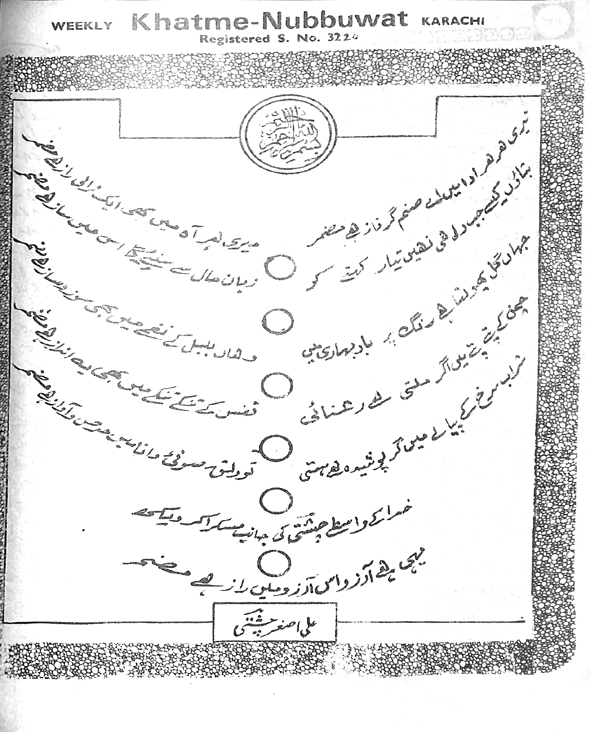 WEEKLY Khatme-Nubbuwat KARACHI
Registered S. No. 3220
تیری هر هر ادا میں اے صنم گر ناز ہے مضمر
میری ہر آہ میں بھی ایک نرالی راز ہے مضمر
بتاؤں کیسے جب دل ہی نہیں تیار کہنے کو
زبان حال سے سینے کا اس میں ساز ہے مضمر
جہاں گل پھولتا ہے رنگ پر باد بہاری میں
وہاں بلبل کے نغمے میں بھی سوز و ساز ہے مضمر
چمن کے پتے پتے میں اگر ملتی ہے رعنائی
قفس کے تنکے تنکے میں بھی انداز ہے مضمر
شراب سرخ کے پیالے میں گر پوشیدہ ہے مستی
تو دلق صوفئ و آواز ہے مضمر
خدا کے واسطے چشتی کی جانب مسکرا کر دیکھ
یہی ہے آرزو اس آرزو میں راز ہے مضمر
علی اصغر چشتی